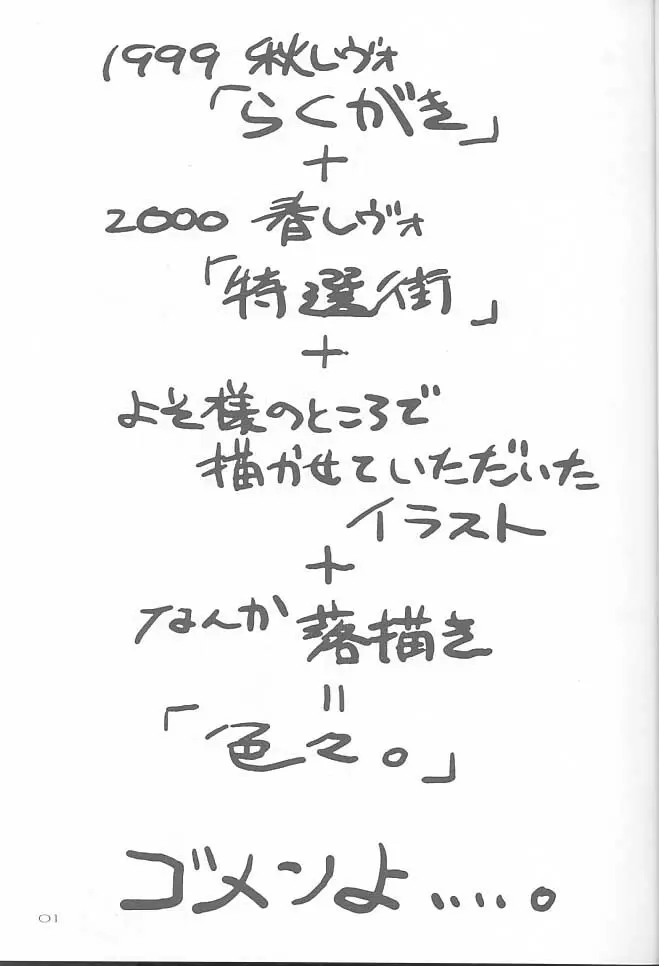 1999 秋レヴォ
「らくがき」
+
2000 春レヴォ
「特選街」
+
よそ様のところで
描かせていただいた
イラスト
+
なんか 落描き
=
「色々。」
ゴメンよ‥‥。
01